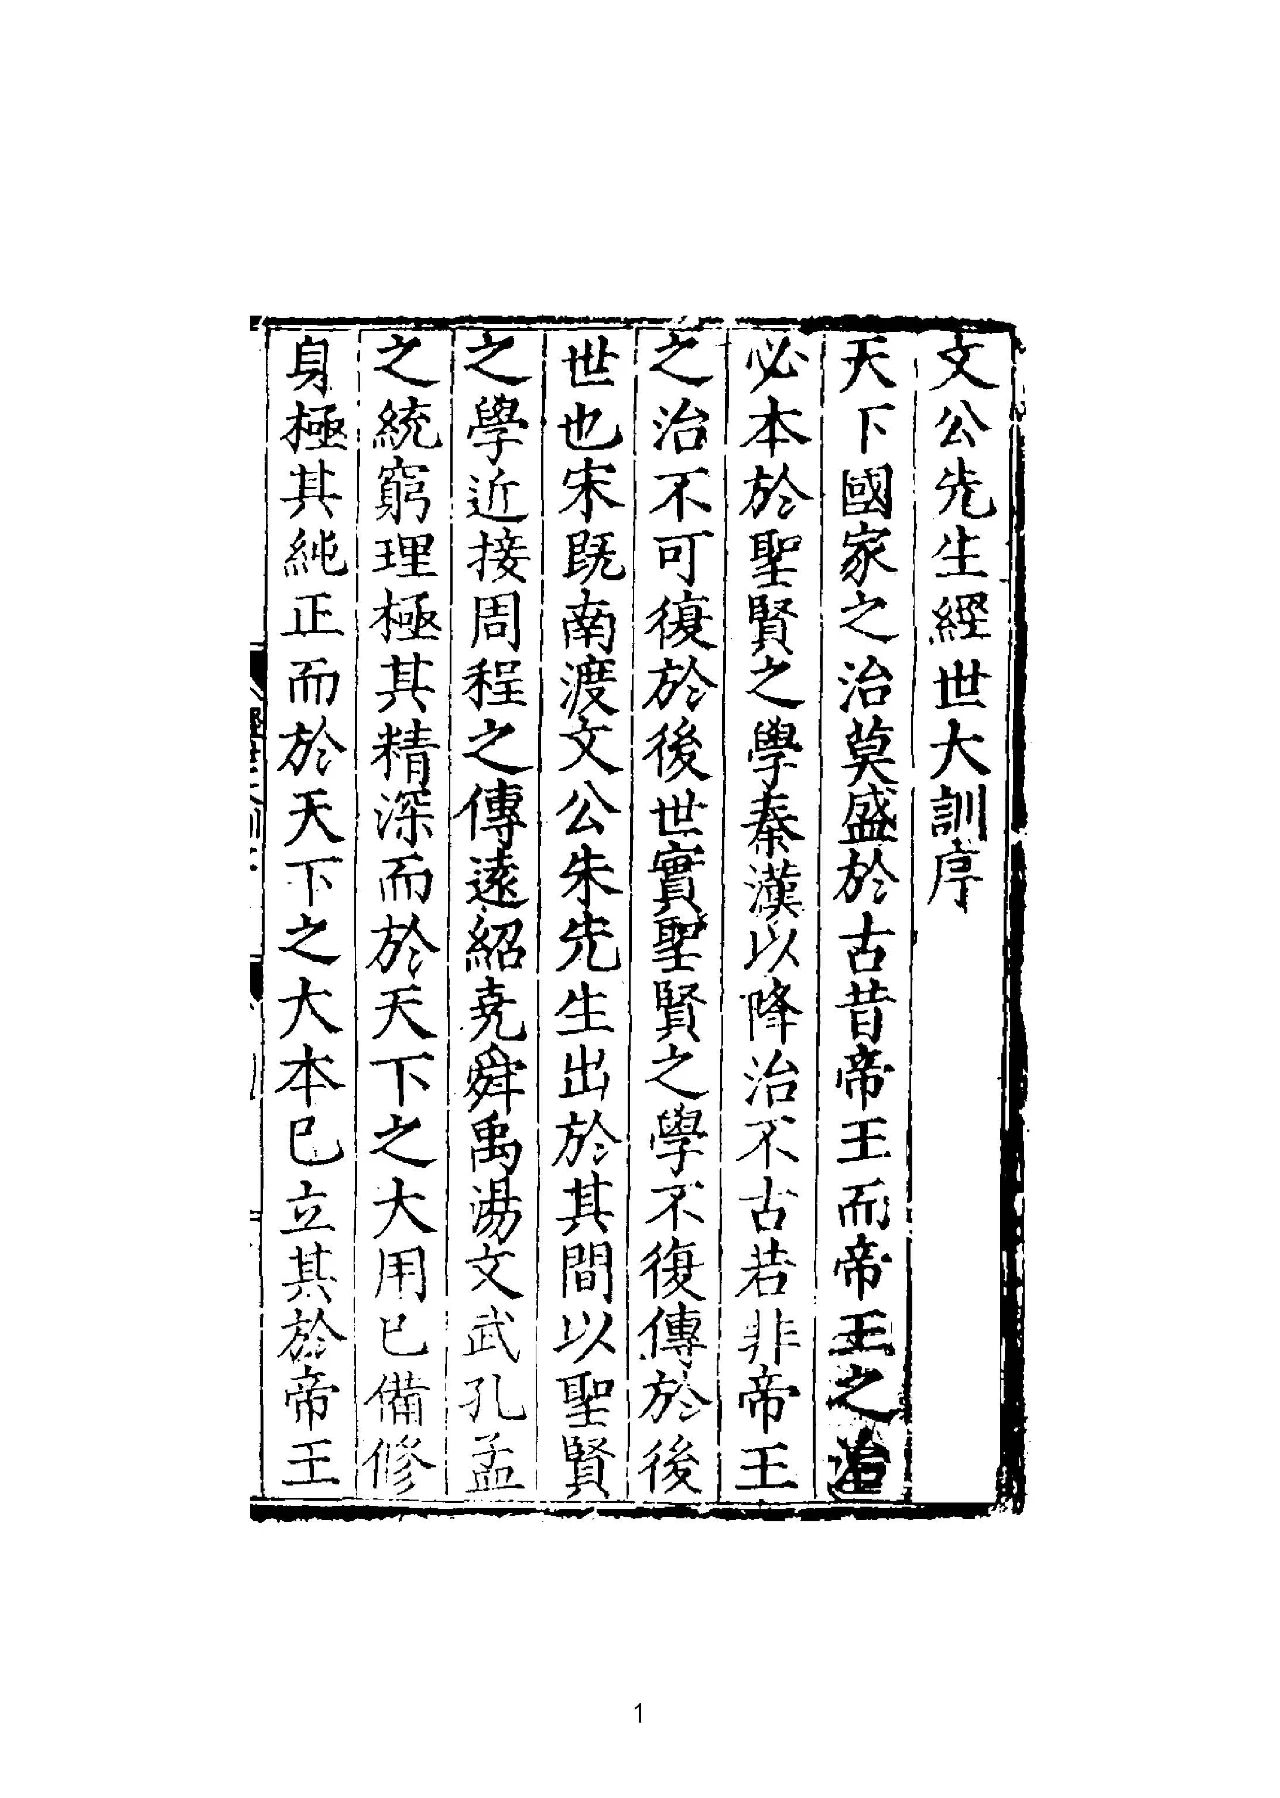 文公先生經世大訓序
天下國家之治莫盛於古昔帝王而帝王之治
必本於聖賢之學秦漢以降治不古若非帝王
之治不可復於後世實聖賢之學不復傳於後
世也宋既南渡文公朱先生出於其間以聖賢
之學近接周程之傳遠紹堯舜禹湯文武孔孟
之統窮理極其精深而於天下之大用已備修
身極其純正而於天下之大本已立其於帝王
1